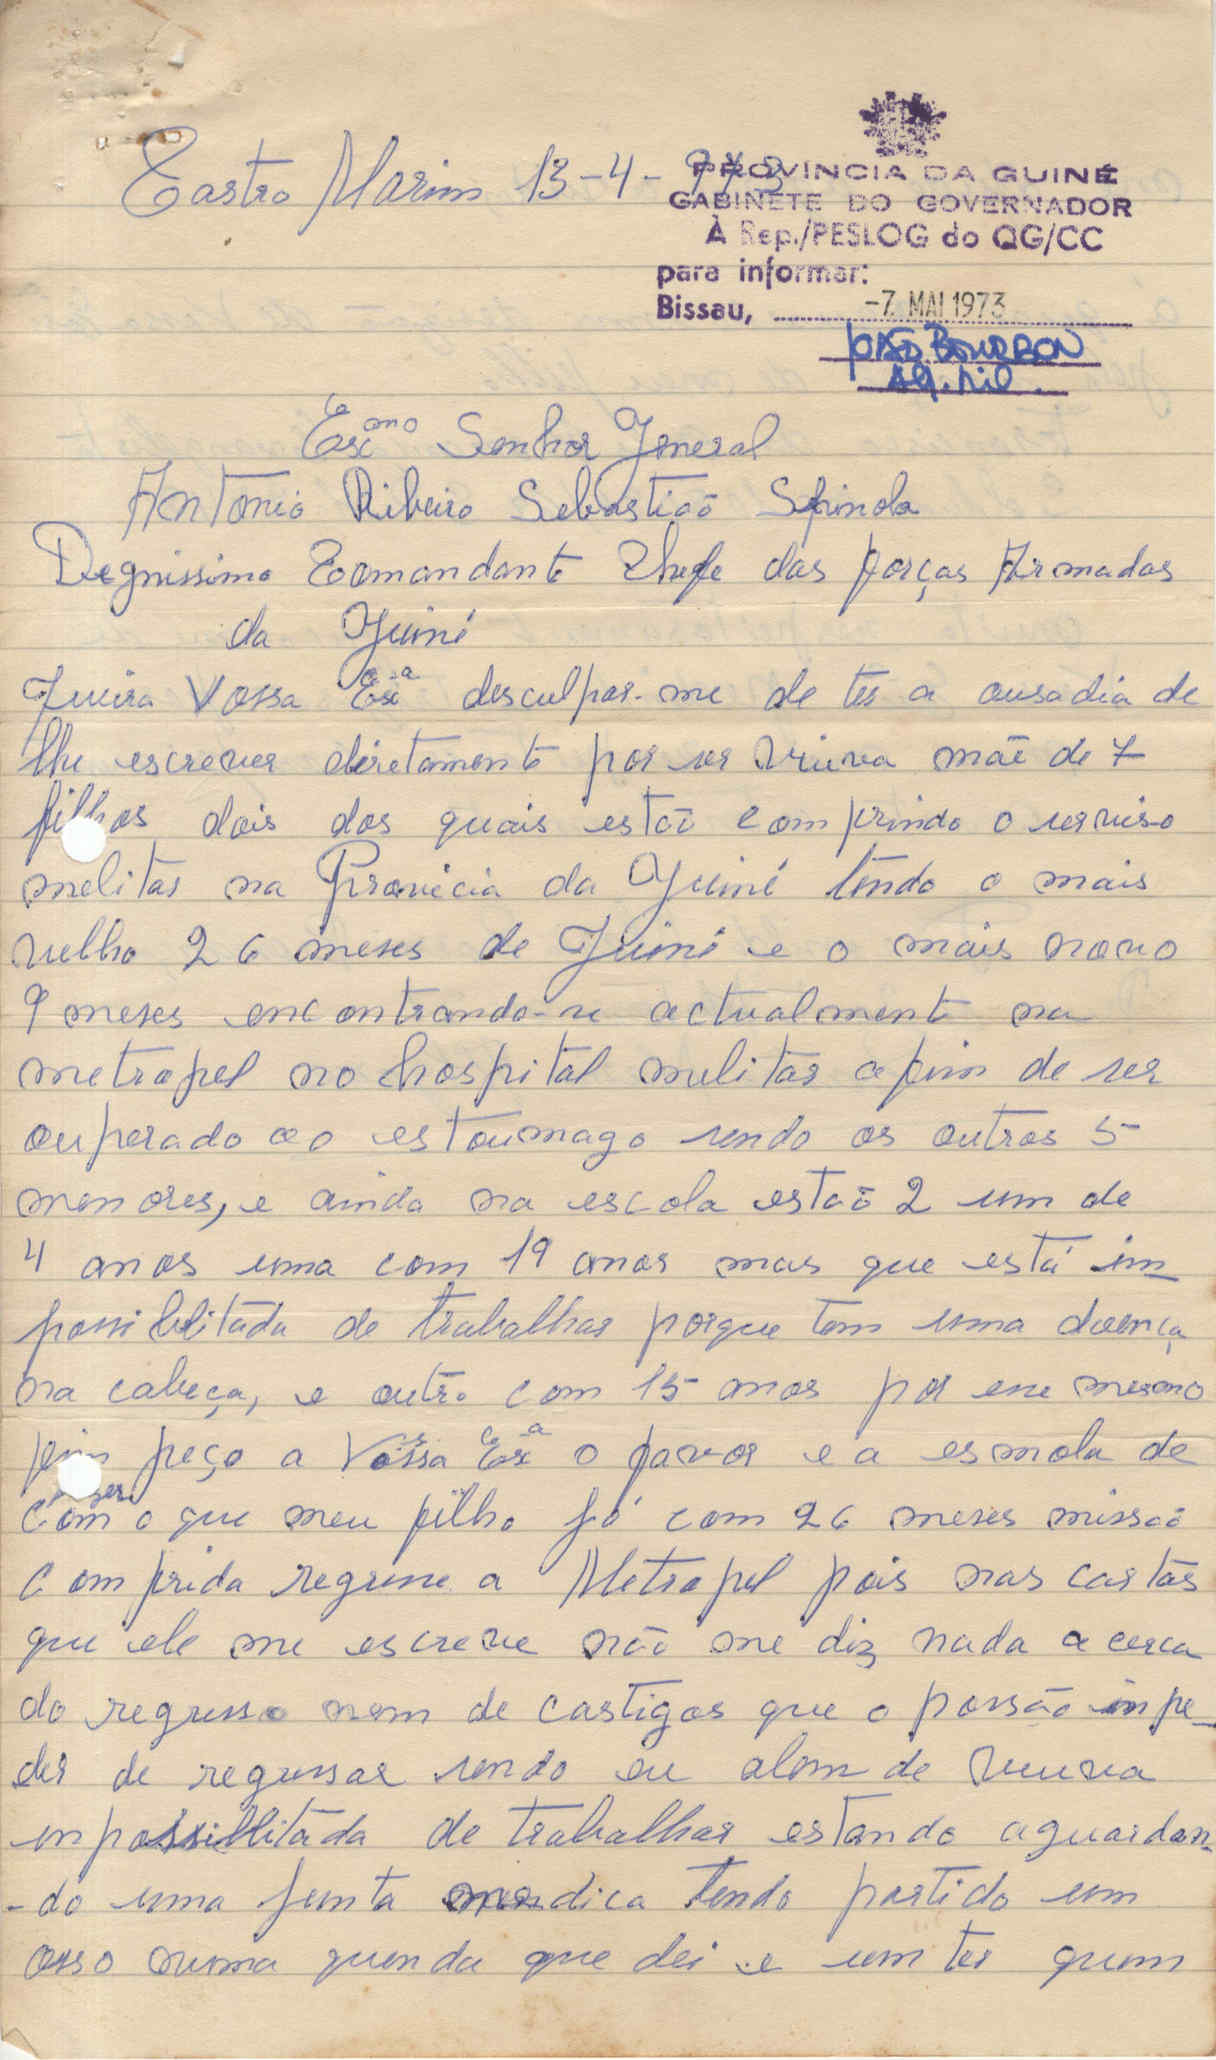 Castro Marim 13-4-973
PROVINCIA DA GUINÉ
GABINETE DO GOVERNADOR
À Rep./PESLOG do QG/CC
para informar:
Bissau, -7. MAI 1973
JOÃO BOURBON
Alf. Mil.
Excmo Senhor General
Antonio Ribeiro Sebastião Spinola
Degnissimo Comandante Chefe das forças Armadas
da Guiné
Queira Vossa Exca desculpar-me de ter a ousadia de
lhe escrever diretamente por ser viuva mãe de 7
filhos dois dos quais estão comprindo o serviso
melitar na Provicia da Guiné tendo o mais
velho 26 meses de Guiné e o mais novo
9 meses encontrando-se actualmente na
metropel no hospital melitar afim de ser
ouperado ao estoumago sendo os outros 5
menores, e ainda na escola estão 2 um de
4 anos uma com 19 anos mas que está im
possibelitada de trabalhar porque tem uma doença
na cabeça, e outro com 15 anos por ese mesmo
fim peço a Vossa Exca o favor e a esmola de
fazer
com o que meu filho já com 26 meses missão
comprida regrese a Metropel pois nas cartas
que ele me escreve não me diz nada acerca
do regresso nem de castigos que o possão inpe-
der de regressar sendo eu alem de viuva
inpossibllitada de trabalhar estando aguardan-
-do uma junta mendica tendo partido um
osso numa quenda que dei e sem ter quem